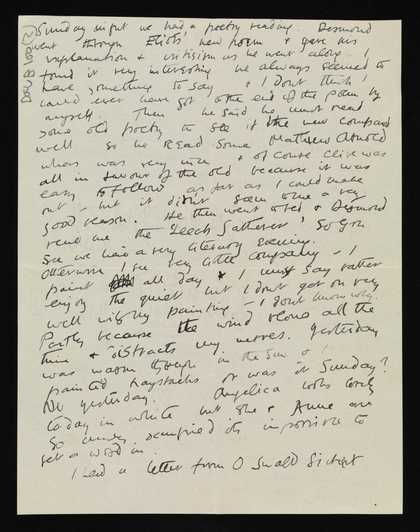 Sunday night we had a poetry reading. Desmond
went through Eliot's new poem & gave his
explanation & criticism as he went along – I
found it very interesting he always seemed to
have something to say & I don't think I
could ever have got to the end of the poem by
myself. Then he said he must read
some old poetry to see if the new compared
well so he read some Matthew Arnold
which was very nice & of course Clive was
all in favour of the old because it was
easy to follow as far as I could make
out – but it didn't seem to me a very
good reason. He then went to bed & Desmond
read me the Leech Gatherer! So you
see we had a very literary evening.
Otherwise I see very little company – I
paint all day & I must say rather
enjoy the quiet but I don't get on very
well with my painting – I don't know why.
Partly because the wind blows all the
time & distracts my nerves. Yesterday
was warm though in the sun & I
painted haystacks or was it Sunday?
No yesterday. Angelica looks lovely
today in white but she & Anne are
so occupied its impossible to
get a word in.
I had a letter from Oswald Sickert